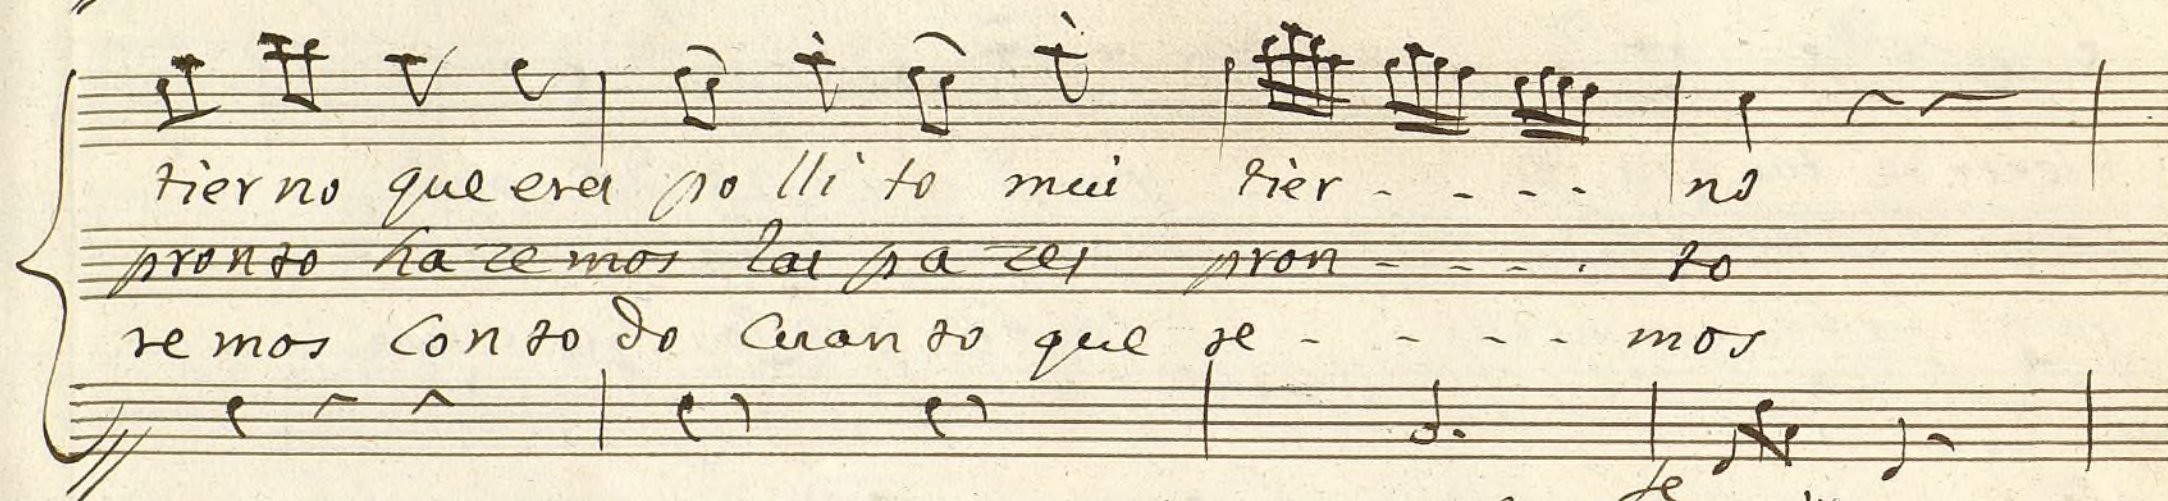 tierno que eres pollito mui tier - - - - no
pronto hazemos las pazes pron - - - - to
remos con todo cuanto que re - - - - mos